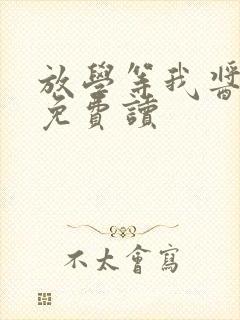 放學等我醬
免費讀
不太會寫